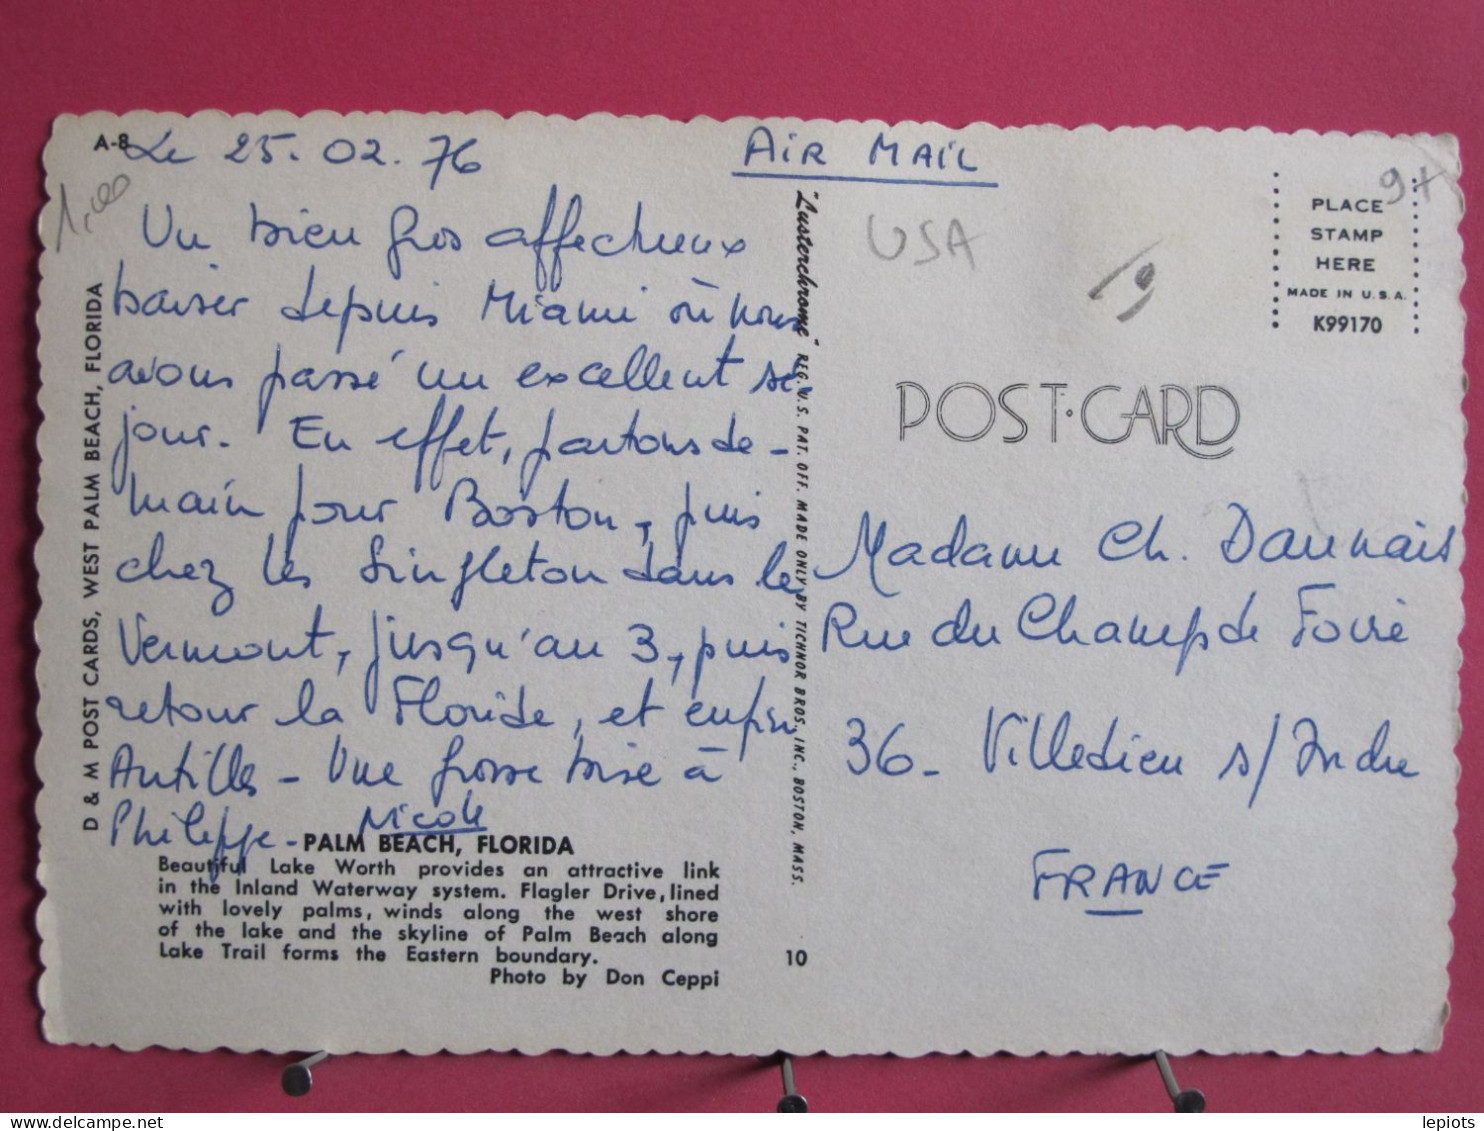 A-8
Le 25.02.76
1,00
Un bien gros affectueux
baiser depuis Miami où nous
avons passé un excellent sé
jour. En effet, partons de-
main pour Boston, puis
chez les Singleton dans le
Vermont, jusqu'au 3, puis
retour la Floride, et enfin
Antilles - Une grosse bise à
Philippe - Nicole
PALM BEACH, FLORIDA
Beautiful Lake Worth provides an attractive link
in the Inland Waterway system. Flagler Drive, lined
with lovely palms, winds along the west shore
of the lake and the skyline of Palm Beach along
Lake Trail forms the Eastern boundary.
Photo by Don Ceppi
D & M POST CARDS, WEST PALM BEACH, FLORIDA
"Lusterchrome" REG. U.S. PAT. OFF. MADE ONLY BY TICHNOR BROS. INC., BOSTON, MASS.
10
AIR MAIL
USA
19
9+
PLACE
STAMP
HERE
MADE IN U.S.A.
K99170
POST·CARD
Madame Ch. Daunais
Rue du Champ de Foire
36 - Villedieu s/Indre
FRANCE
lepiots